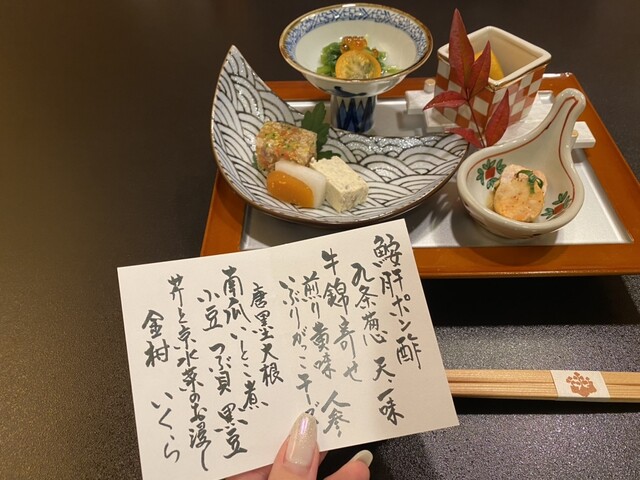 鮟肝ポン酢
九条葱 天一味
牛錦寄せ
煎り黄味 人参
いぶりがっこチーズ
唐墨大根
南瓜いとこ煮
小豆 つぶ貝 黒豆
芹と京水菜のお浸し
金柑 いくら